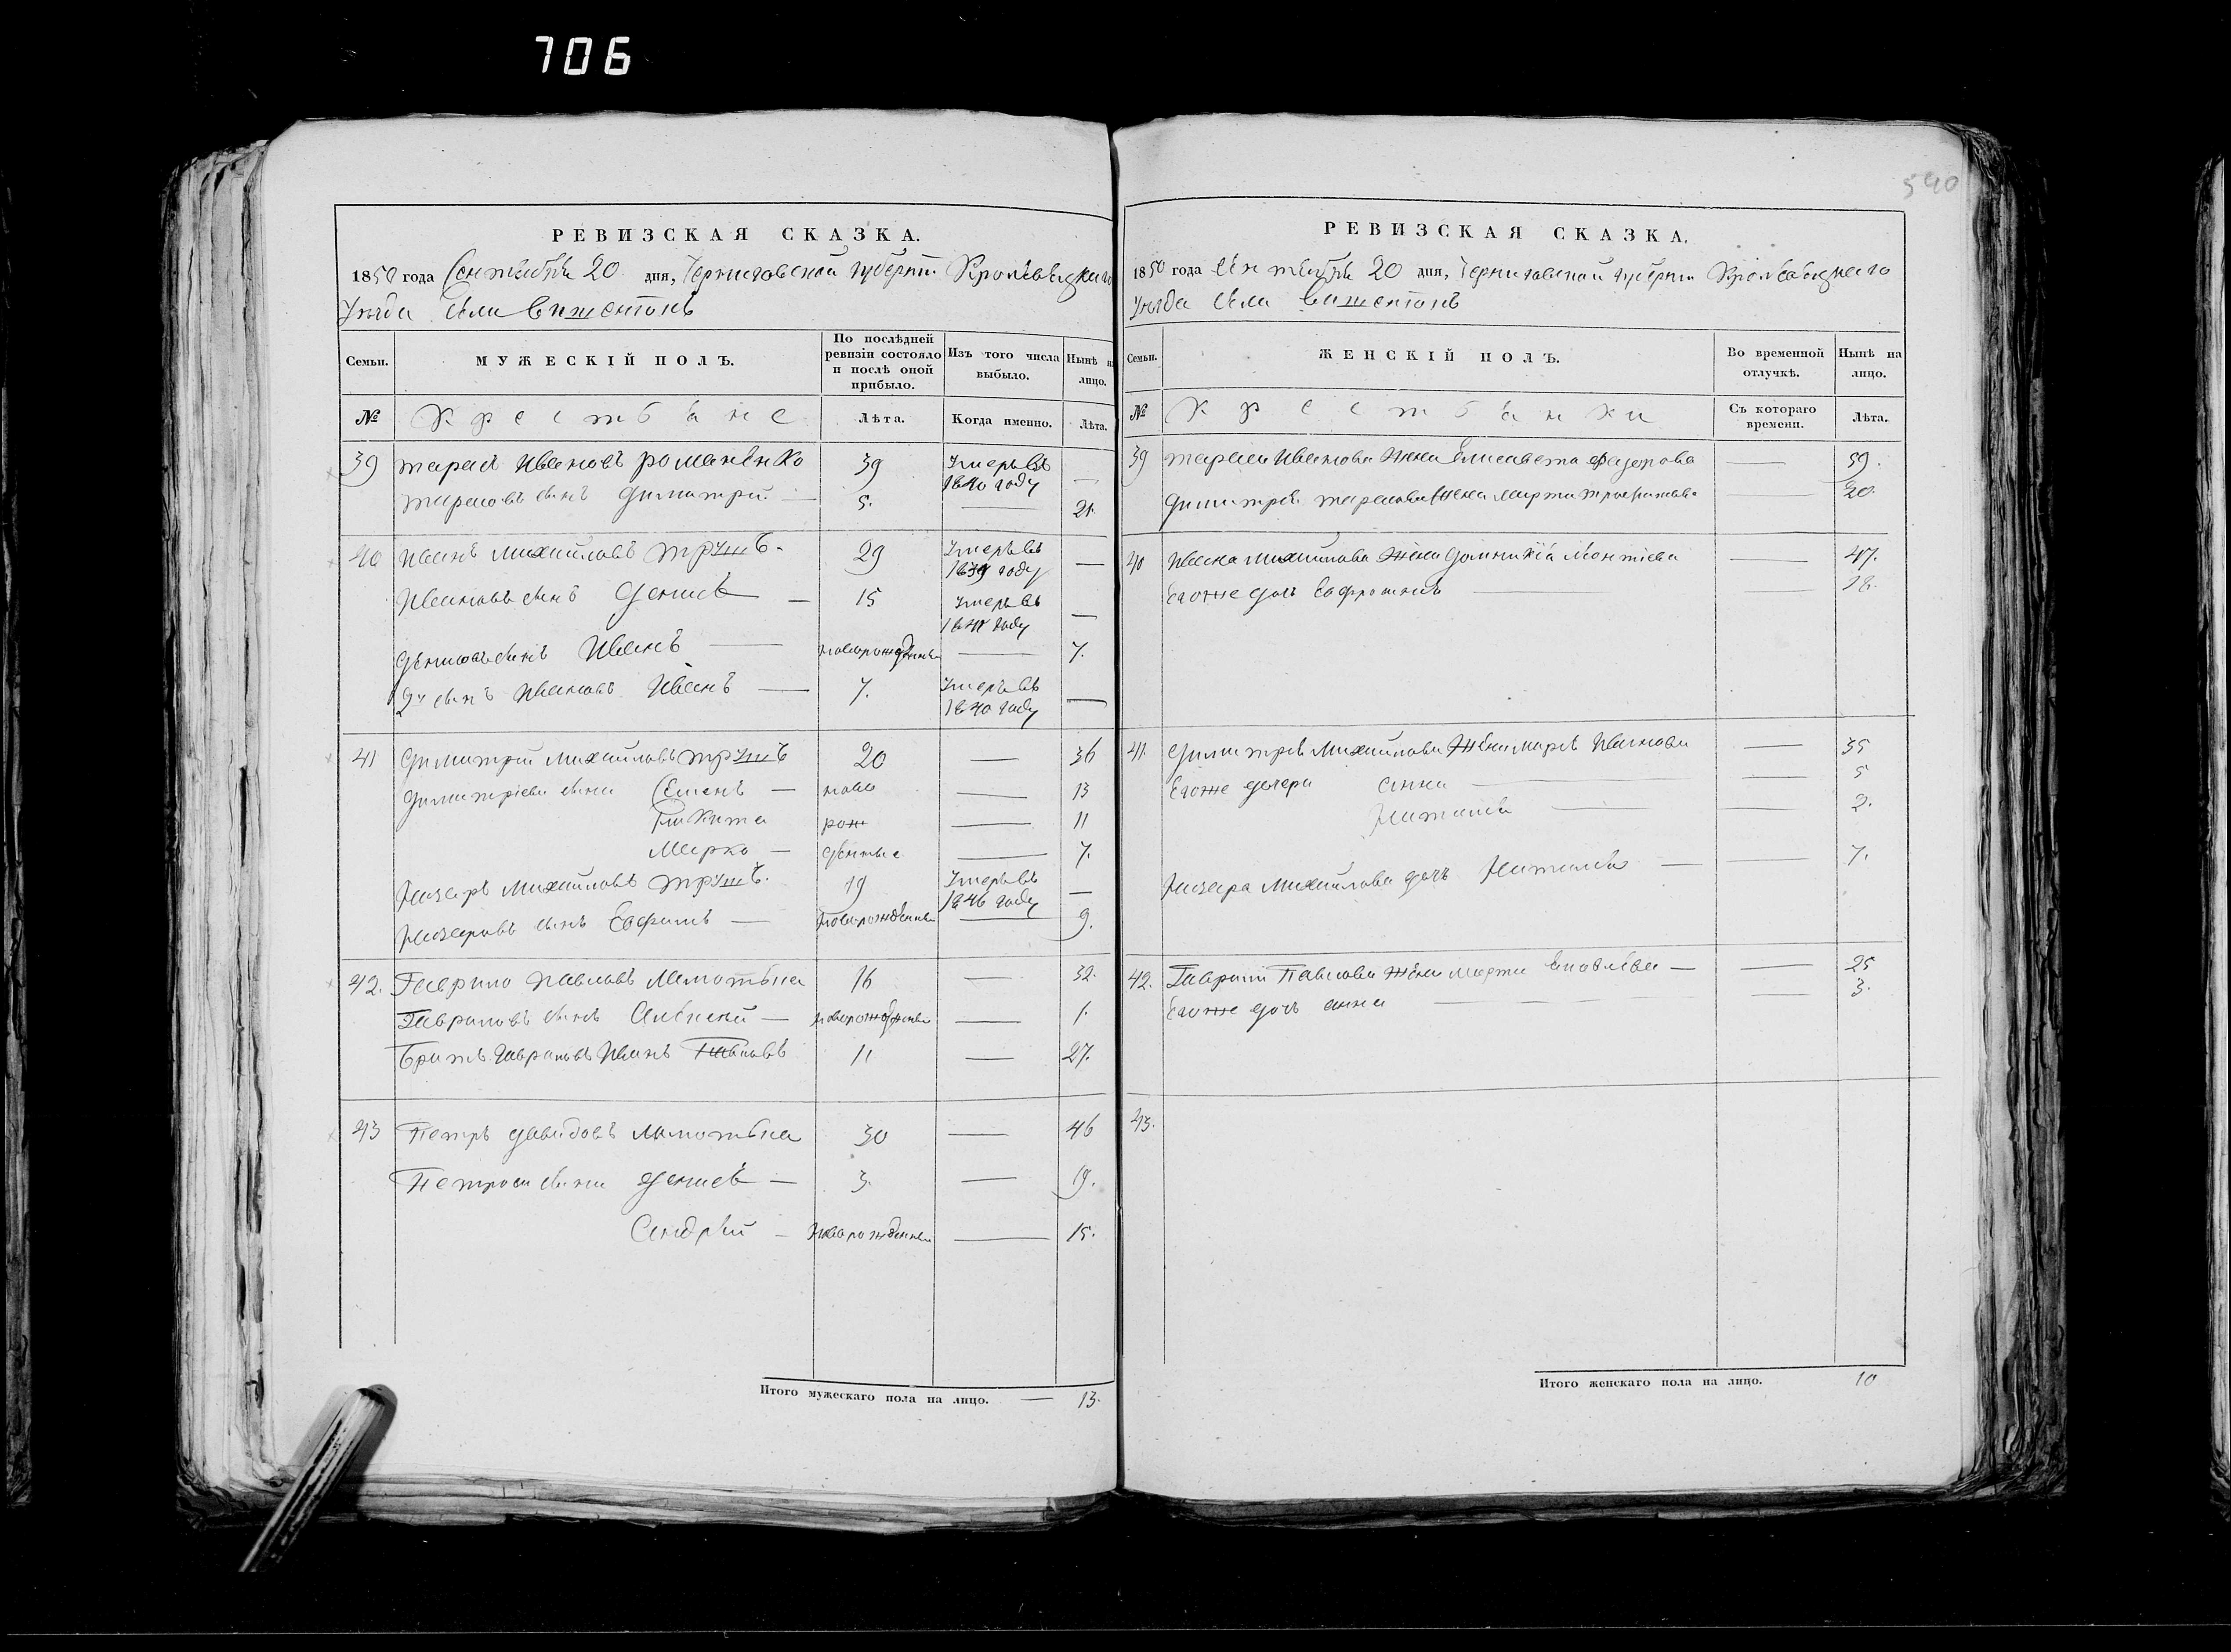 706
540
РЕВИЗСКАЯ СКАЗКА.
1850 года Сентября 20 дня, Черниговской губерніи Кролевецкаго
Уезда Села
МУЖЕСКІЙ ПОЛЪ.
Семьи.
По послѣдней ревизіи состояло и послѣ оной прибыло.
Изъ того числа выбыло.
Нынѣ на лицо.
№ Крестьяне Лѣта. Когда именно. Лѣта.
39 Тарасъ Ивановъ Романенко 39 Умеръ въ 1840 году —
Тарасовъ сынъ Димитрій — 5. — 21.
40 Иванъ Михайловъ Трушъ. 29 Умеръ въ 1839 году —
Ивановъ сынъ Денисъ — 15 Умеръ въ 1841 году —
Денисовъ сынъ Иванъ — новорожденный — 7.
2й сынъ Ивановъ Иванъ — 7. Умеръ въ 1840 году —
41 Димитрій Михайловъ Трушъ 20 — 36
Димитріевы сыны Семенъ — ново — 13
Никита рож — 11
Марко — денные — 7.
Назаръ Михайловъ Трушъ. 19 Умеръ въ 1846 году —
Назаровъ сынъ Евфимъ — новорожденный — 9.
42. Гаврило Павловъ 16 — 32.
Гавриловъ сынъ Алексей — новорожденный — 1.
Братъ Гавриловъ Иванъ Павловъ 11 — 27.
43 Петръ Давидовъ 30 — 46
Петровы сыны Денисъ — 3. — 19.
Андрей — новорожденный — 15.
Итого мужескаго пола на лицо. — 13.
РЕВИЗСКАЯ СКАЗКА.
1850 года Сентября 20 дня, Черниговской губерніи Кролевецкаго
Уезда Села
Семьи. ЖЕНСКІЙ ПОЛЪ. Во временной отлучкѣ. Нынѣ на лицо.
№ Крестьянки Съ котораго времени. Лѣта.
39 Тараса Иванова жена Елисавета Федорова — 59.
Димитрія Тарасова жена Марфа — 20.
40 Ивана Михайлова жена Домникія — 47.
Егоже дочь Евфросинія — 18.
41. Димитрія Михайлова жена Марія Иванова — 35
Егоже дочери Анна — 5
Наталія — 2.
Назара Михайлова дочь Наталія — 7.
42. Гаврила Павлова жена Марфа Яковлева — 25
Егоже дочь Анна — 3.
43.
Итого женскаго пола на лицо. 10